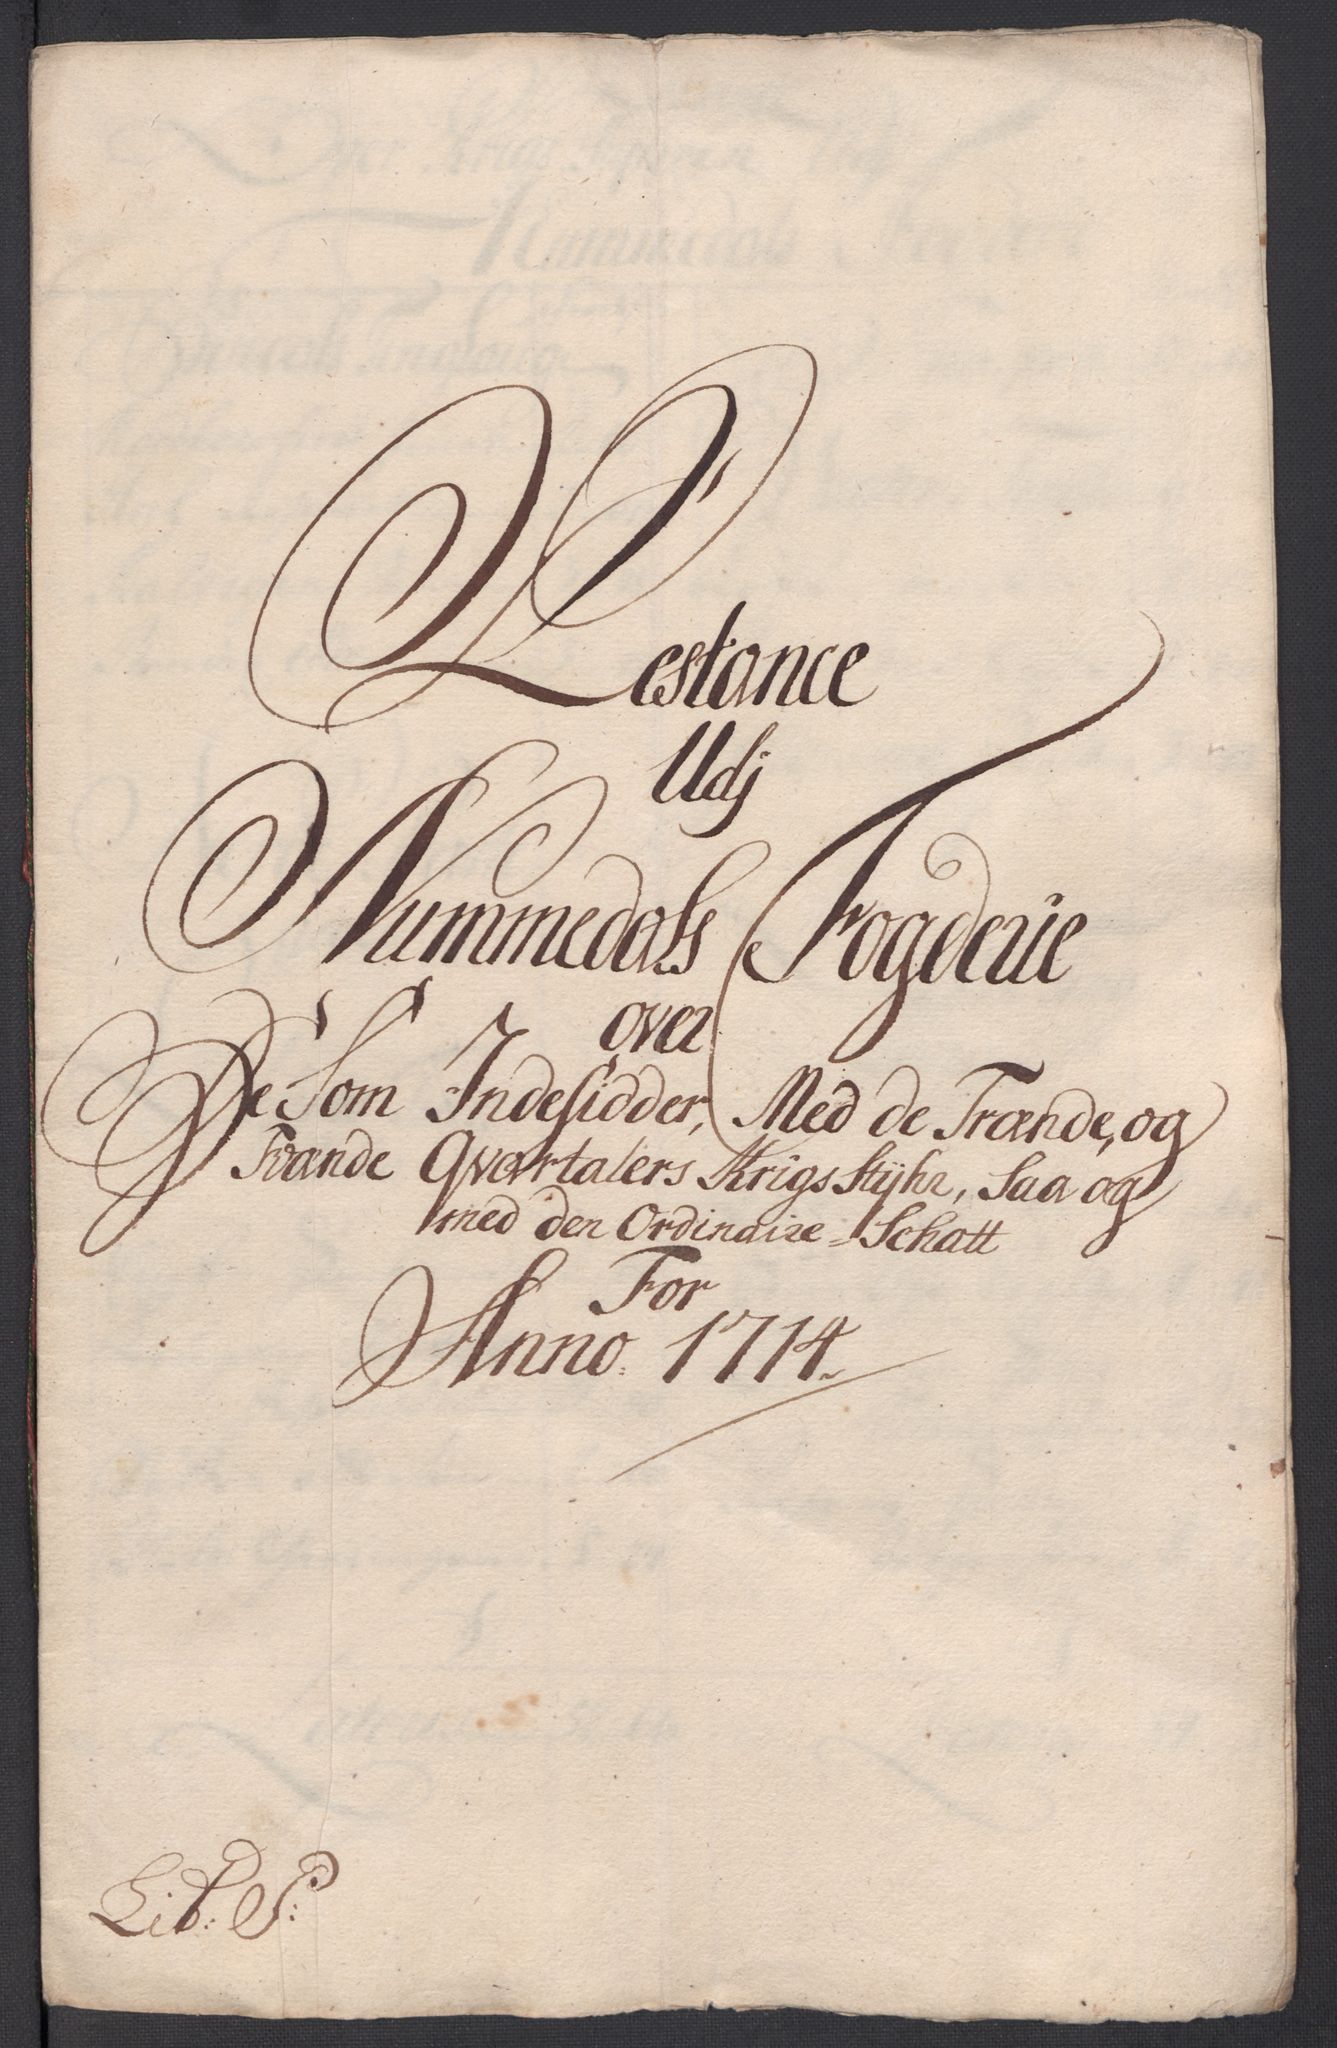 Restance
Udj
Nummedals Fogderie
over
De Som Indesidder, Med de Trænde, og
Fvænde Qvartalers Krigs Stÿhr, Saa og
med den Ordinaire Schatt
For
Anno. 1714.
Lit: S: